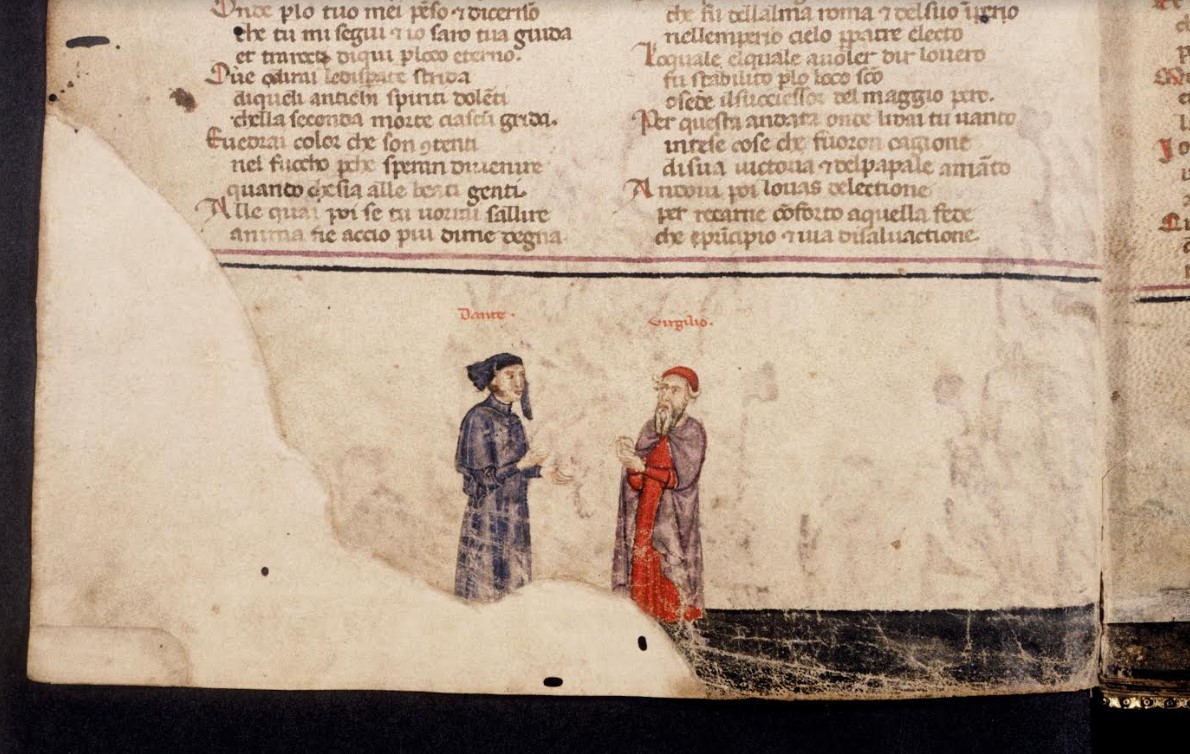 Onde p lo tuo mei peso ⁊ dicerno
che tu mi segui ⁊ io saro tua guida
et trarrotti di qui p loco eterno.
Oue odirai le dispate strida
di queli antichi spiriti dolēti
che la seconda morte ciascū grida.
E uedrai color che son ɔtenti
nel fuocho pche speran di uenire
quando che sia alle beati genti.
Alle quai poi se tu uorrai sallire
anima fie accio piu di me degna
che fu dellalma roma ⁊ del suo īperio
nellemperio cielo p patre electo
La quale el quale a uoler dir lo uero
fu stabilito p lo loco sc̄o
o sede il successor del maggio piero.
Per questa andata onde li dai tu uanto
intese cose che fuoron cagione
di sua uictoria ⁊ del papale amāto
Andoui poi lo uas delectione
per recarne cōforto a quella fede
che e prīcipio a la uia di saluactione.
Dante.
Virgilio.